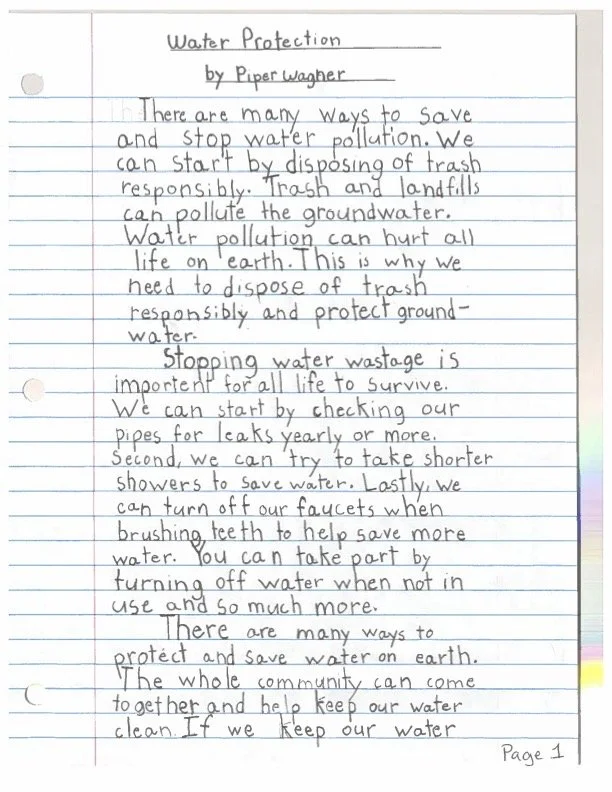 Water Protection
by Piper Wagner
There are many ways to save
and stop water pollution. We
can start by disposing of trash
responsibly. Trash and landfills
can pollute the groundwater.
Water pollution can hurt all
life on earth. This is why we
need to dispose of trash
responsibly and protect ground-
water.
Stopping water wastage is
importent for all life to survive.
We can start by checking our
pipes for leaks yearly or more.
Second, we can try to take shorter
showers to save water. Lastly, we
can turn off our faucets when
brushing teeth to help save more
water. You can take part by
turning off water when not in
use and so much more.
There are many ways to
protect and save water on earth.
The whole community can come
together and help keep our water
clean. If we keep our water
Page 1